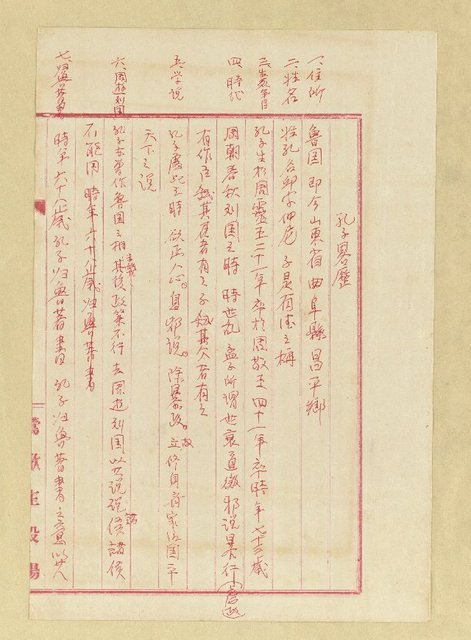 孔子畧歷
一、住所 魯国 即今山東省曲阜縣昌平鄉
二、姓名 姓孔名邱字仲尼 子是有德之稱
三、生卒年月 孔子生於周靈王二十一年卒於周敬王四十一年卒時年七十三歲
四、時代 周朝春秋列国之時 時世乱 孟子所謂世衰道微邪說暴行
有作臣弒其君者有之子弒其父者有之
五、学說 孔子處此之時 欲正人心。息邪說。除暴政。故立修身齊家治国平
天下之說
六、周遊列国 孔子在魯作魯国之相其後政策不行去周遊列国以其說說諸侯諸侯
不能用 時年六十八歲归魯著書
七、 時年六十八歲孔子归魯著書 孔子归魯著書之意以